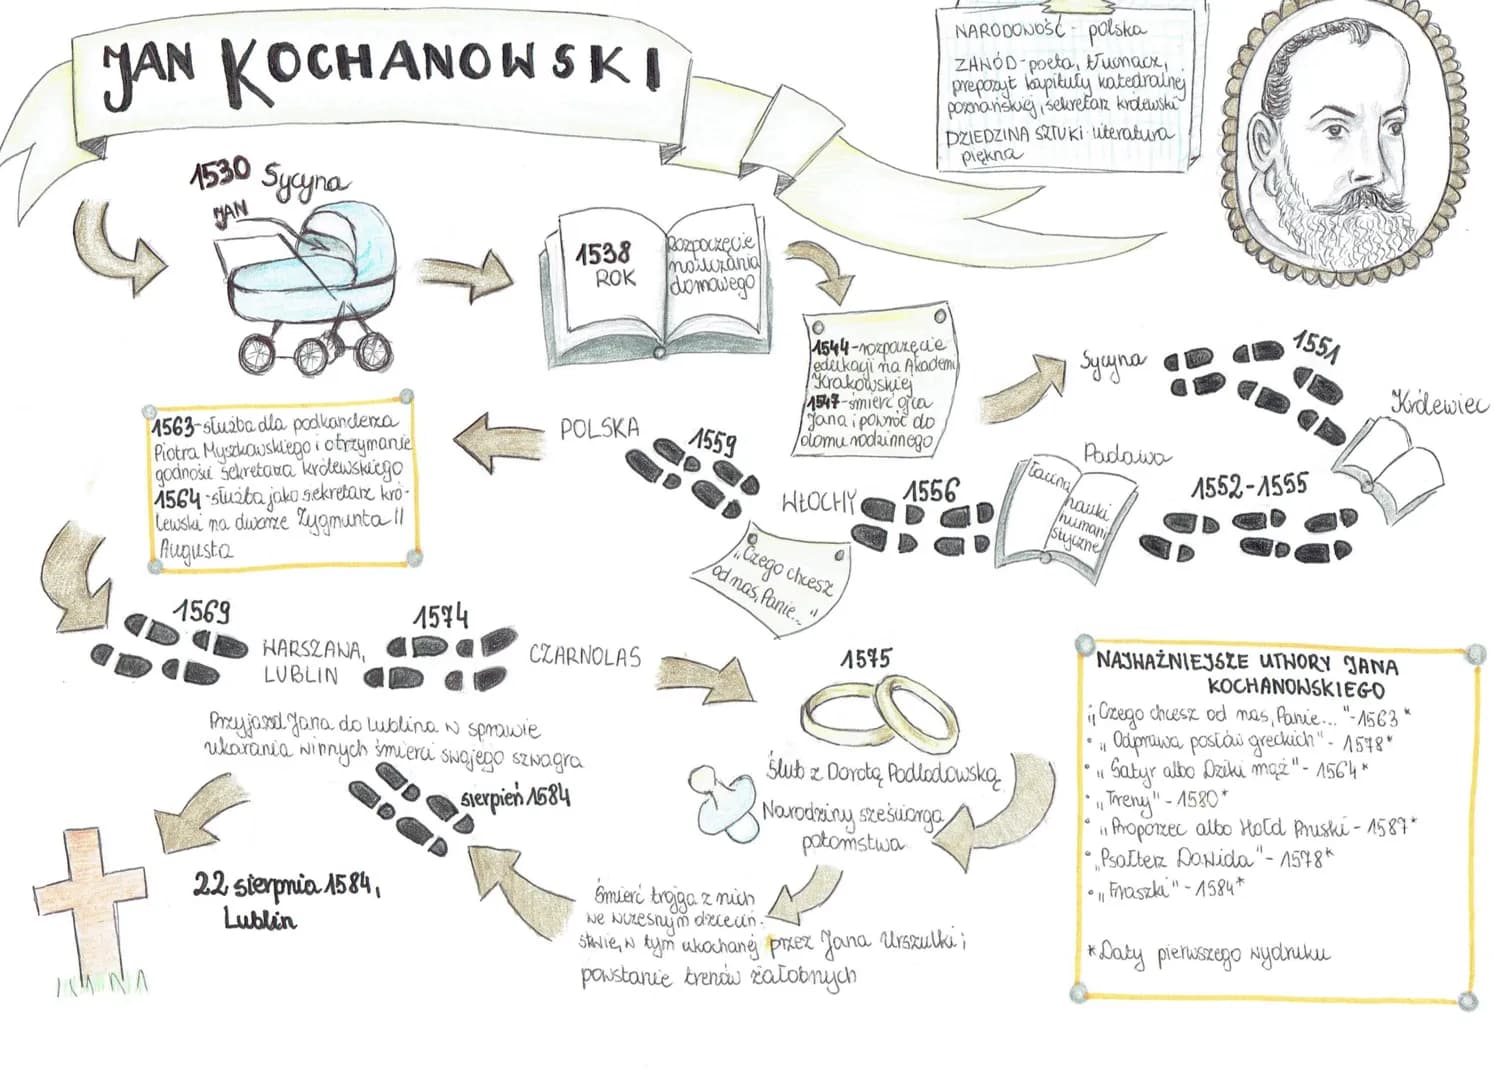 JAN KOCHANOWSKI
NARODOWOŚĆ - polska
ZAWÓD - poeta, tłumacz,
prepozyt kapituły katedralnej
poznańskiej, sekretarz królewski
DZIEDZINA SZTUKI - literatura
piękna
1530 Sycyna
JAN
1538
ROK
Rozpoczęcie
nauczania
domowego
1544 - rozpoczęcie
edukacji na Akademi
Krakowskiej
1547 - śmierć ojca
Jana i powrót do
domu rodzinnego
Sycyna
1551
Królewiec
1552-1555
Padawa
Łacina,
nauki
humani
styczne
1556
WŁOCHY
"Czego chcesz
od nas, Panie..."
1559
POLSKA
1563 - służba dla podkanclerza
Piotra Myszkowskiego i otrzymanie
godności sekretarza królewskiego
1564 - służba jako sekretarz kró-
lewski na dworze Zygmunta II
Augusta
1569
WARSZAWA,
LUBLIN
1574
CZARNOLAS
1575
Ślub z Dorotą Podlodowską
Narodziny sześciorga
potomstwa
Śmierć trojga z nich
we wczesnym dzieciń-
stwie, w tym ukochanej przez Jana Urszulki;
powstanie trenów żałobnych
Przyjazd Jana do Lublina w sprawie
ukarania winnych śmierci swojego szwagra
sierpień 1584
22 sierpnia 1584,
Lublin
NAJWAŻNIEJSZE UTWORY JANA
KOCHANOWSKIEGO
"Czego chcesz od nas, Panie..." - 1563*
• "Odprawa posłów greckich" - 1578*
• "Satyr albo Dziki mąż" - 1564*
• "Treny" - 1580*
• "Proporzec albo Hołd Pruski - 1587*
• "Psałterz Dawida" - 1578*
• "Fraszki" - 1584*
*Daty pierwszego wydruku